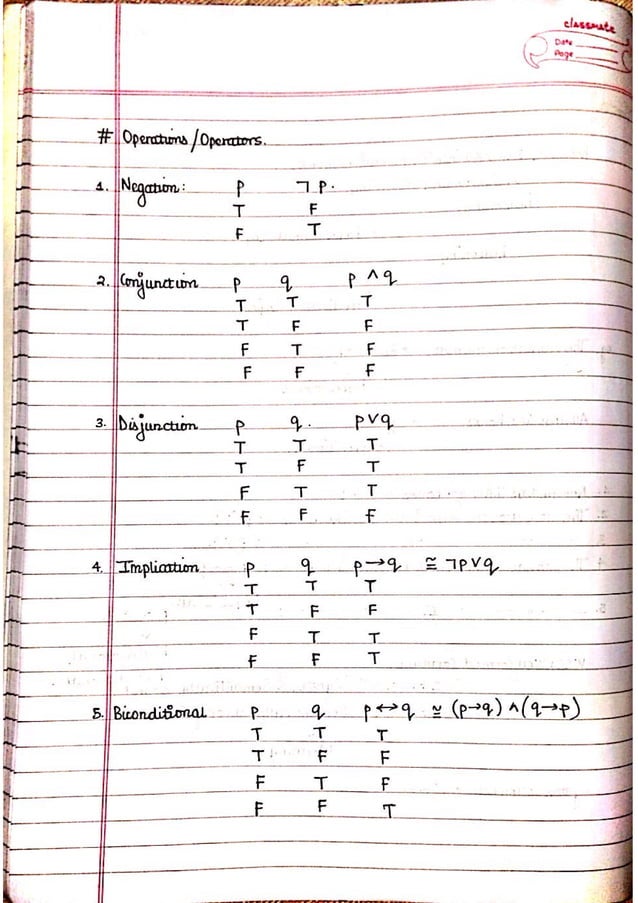 classmate
Date
Page
# Operations/Operators.
1. Negation: p ¬p.
T F
F T
2. Conjunction p q p ∧ q
T T T
T F F
F T F
F F F
3. Disjunction p q. p∨q
T T T
T F T
F T T
F F F
4. Implication p q p→q ≅ ¬p∨q
T T T
T F F
F T T
F F T
5. Biconditional p q p↔q ≅ (p→q) ∧ (q→p)
T T T
T F F
F T F
F F T